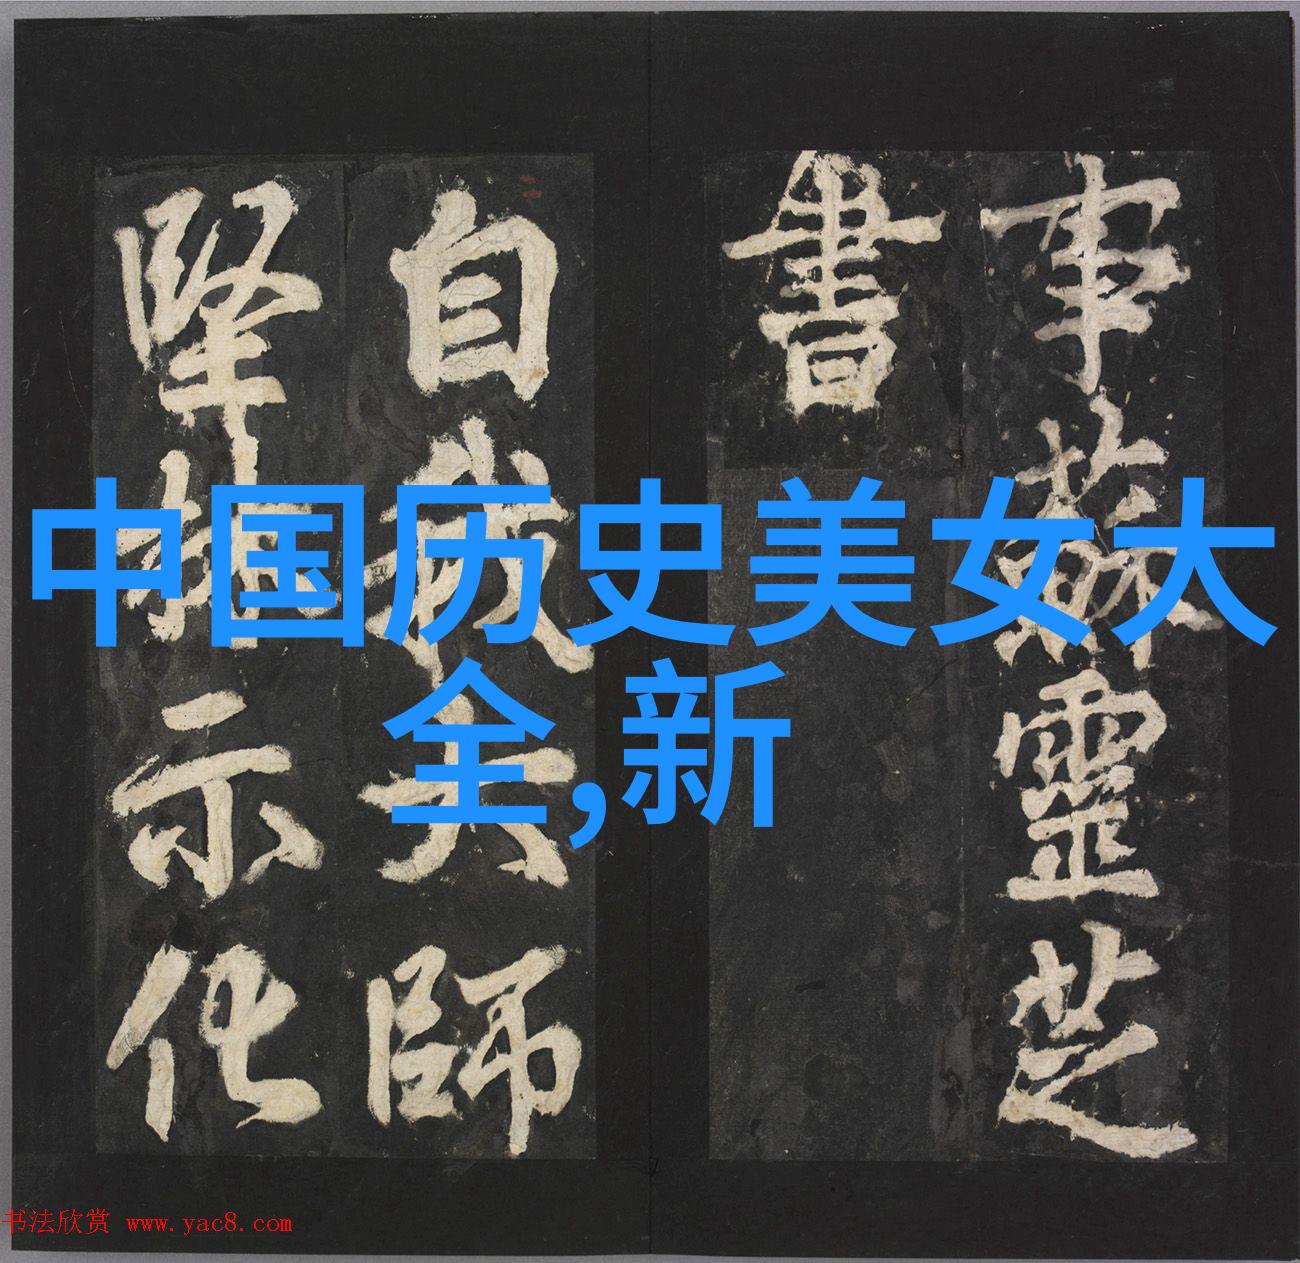 事蘇靈芝
書
自我大師
堅林示化
中国历史美女大
全,新
书法欣赏 www.yac8.com